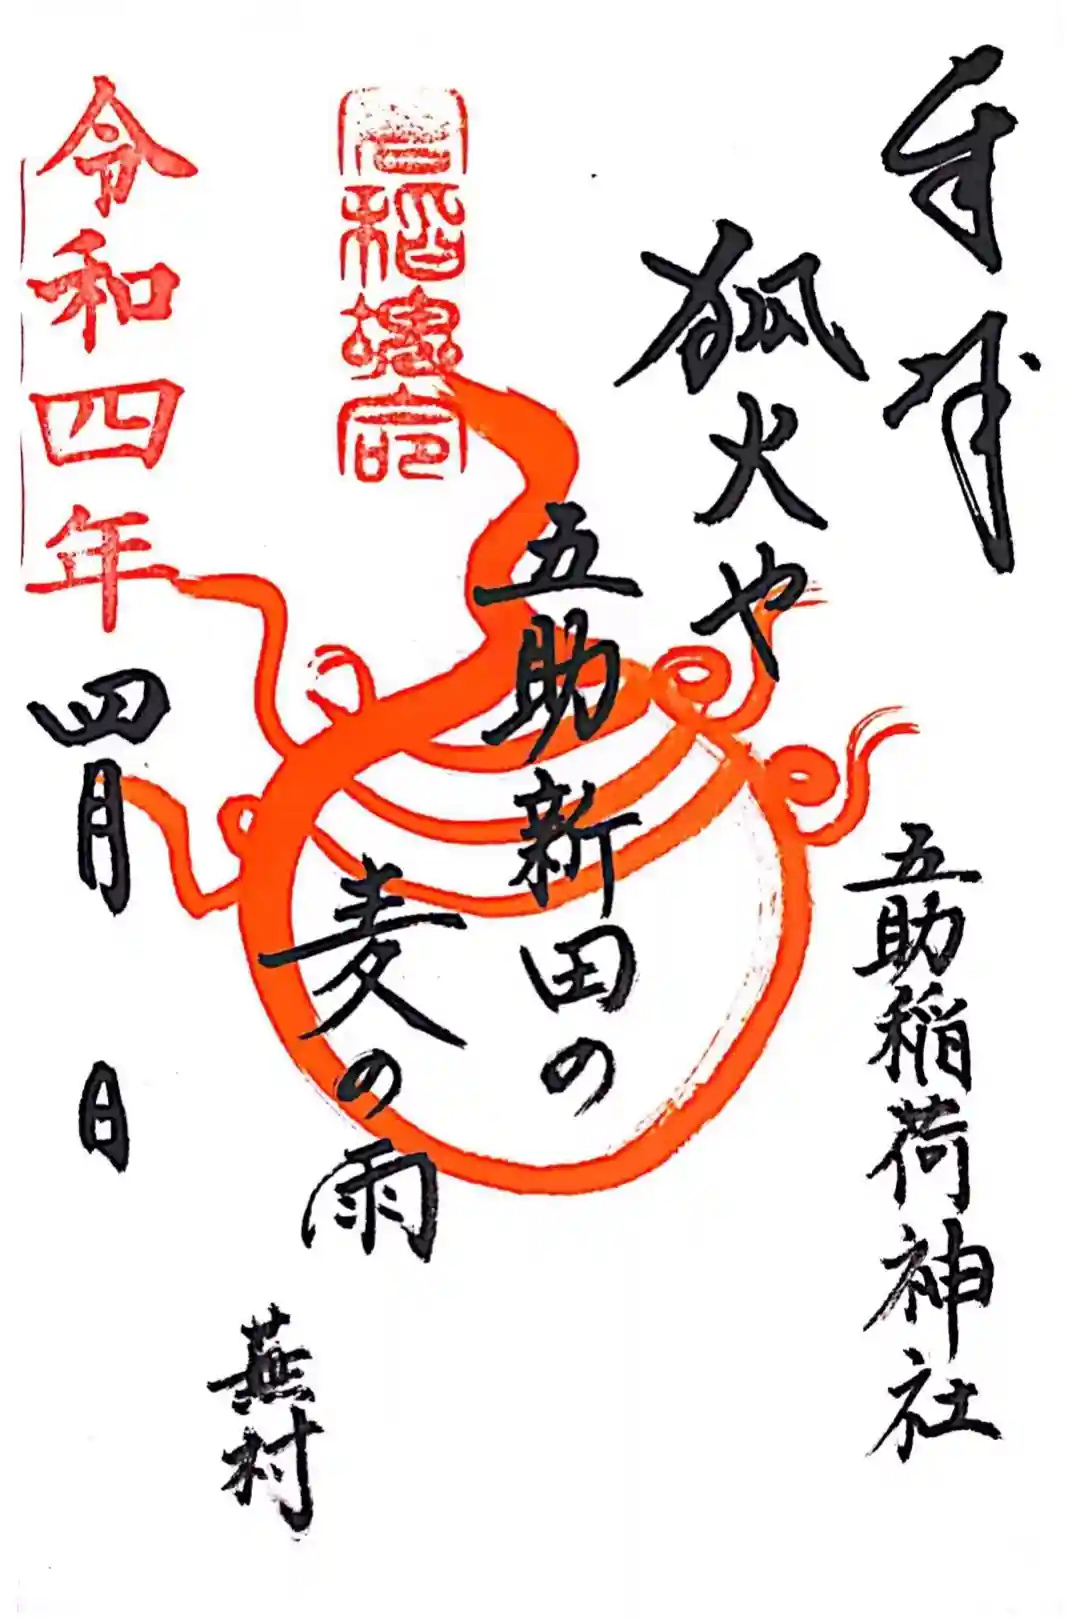 奉拝
五助稲荷神社
狐火や
五助新田の
麦の雨
蕪村
令和四年四月 日